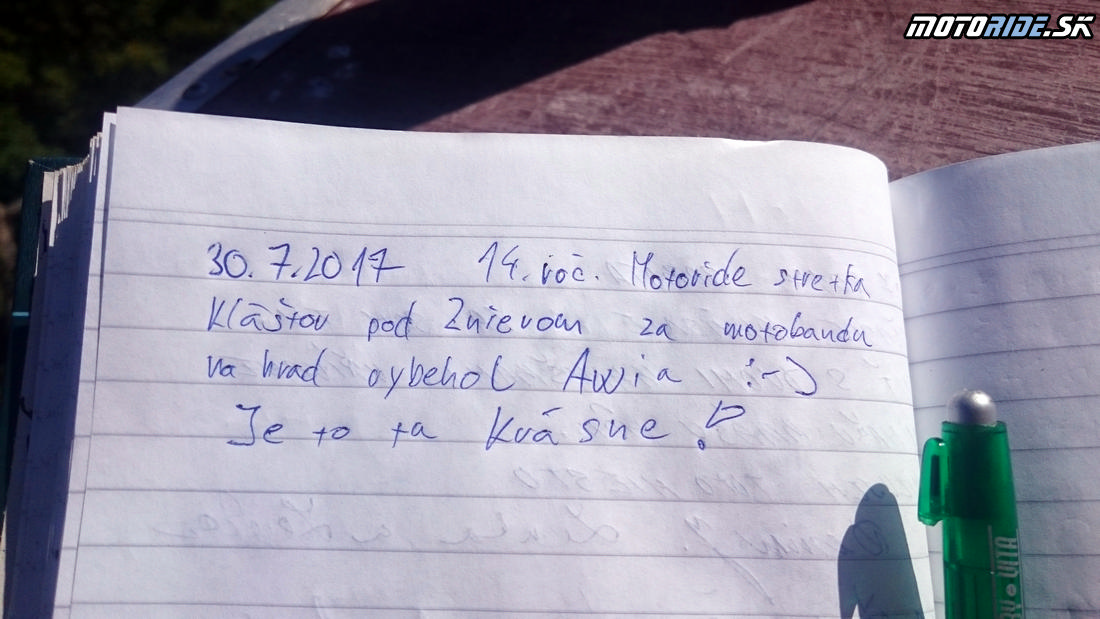 MOTORIDE.SK
30.7.2017 14. roč. Motoride stretka
Kláštor pod Znievom za motobandu
na hrad vybehol Awia :-)
Je to tu krásne!
VITA